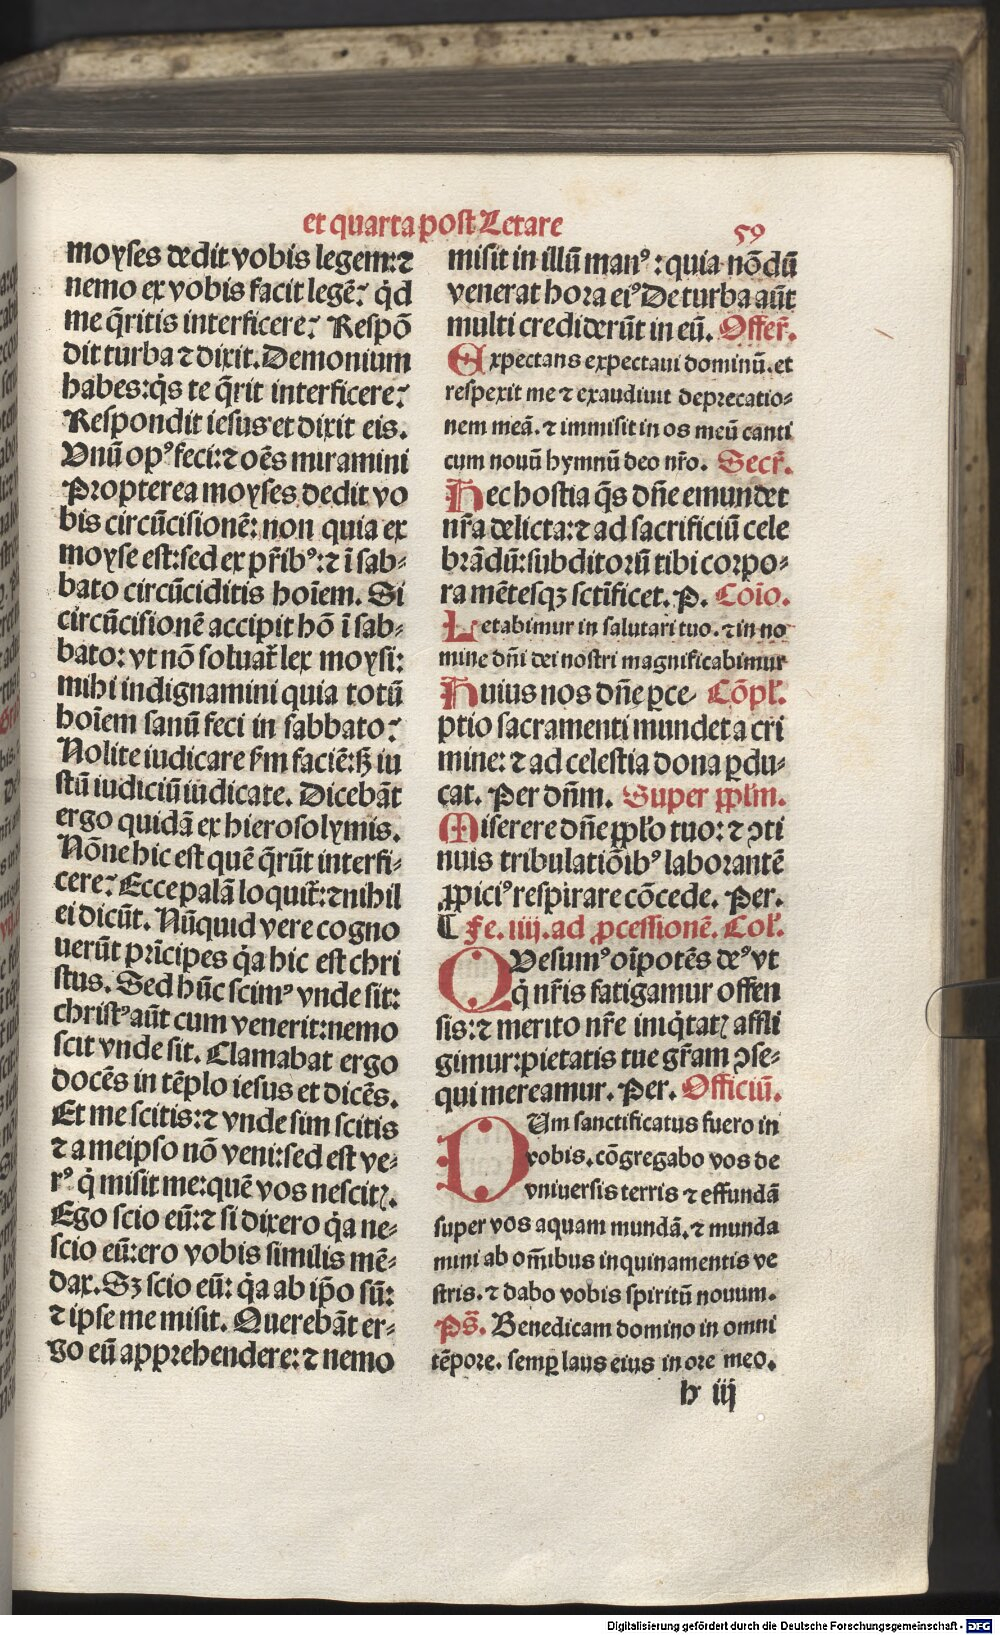 et quarta post Letare
59
moyses dedit vobis legem:⁊
nemo ex vobis facit legē? qͥd
me q̄ritis interficere? Respō
dit turba ⁊ dixit. Demonium
habes: qͥs te q̄rit interficere?
Respondit iesus et dixit eis.
Vnū opꝰ feci:⁊ oēs miramini
Propterea moyses dedit vo
bis circūcisionē: non quia ex
moyse est: sed ex pr̄ibꝰ:⁊ ī sab⸗
bato circūciditis hoīem. Si
circūcisionē accipit hō ī sab⸗
bato: vt nō soluat̄ lex moysi:
mihi indignamini quia totū
hoīem sanū feci in sabbato?
Nolite iudicare ẜm faciē: ß iu
stū iudiciū iudicate. Dicebāt
ergo quidā ex hierosolymis.
Nōne hic est quē q̄rūt interfi⸗
cere? Ecce palā loquit̄:⁊ nihil
ei dicūt. Nūquid vere cogno
uerūt pr̄icipes qͥa hic est chri
stus. Sed hūc scimꝰ vnde sit:
christꝰ aūt cum venerit: nemo
scit vnde sit. Clamabat ergo
docēs in tēplo iesus et dicēs.
Et me scitis:⁊ vnde sim scitis
⁊ a meipso nō veni: sed est ve⸗
rꝰ qͥ misit me: quē vos nescitꝭ.
Ego scio eū:⁊ si dixero qͥa ne⸗
scio eū: ero vobis similis mē⸗
dax. Sꝫ scio eū: qͥa ab ip̄o sū:
⁊ ipse me misit. Querebāt er⸗
go eū apprehendere:⁊ nemo
misit in illū manꝰ: quia nōdū
venerat hora eiꝰ De turba aūt
multi crediderūt in eū. Offer̄.
Expectans expectaui dominū. et
respexit me ⁊ exaudiuit deprecatio⸗
nem meā. ⁊ immisit in os meū canti
cum nouū hymnū deo nr̄o. Secr̄.
Hec hostia q̄s dn̄e emundet
nr̄a delicta:⁊ ad sacrificiū cele
brādū: subditorū tibi corpo⸗
ra mētesqꝫ sctīficet. P. Coīo.
Letabimur in salutari tuo. ⁊ in no
mine dn̄i dei nostri magnificabimur
Huius nos dn̄e ꝑce⸗ Cōpl̄.
ptio sacramenti mundet a cri
mine:⁊ ad celestia dona ꝑdu⸗
cat. Per dn̄m. Super ppl̄m.
Miserere dn̄e ppl̄o tuo:⁊ ↄti
nuis tribulatiōibꝰ laborantē
ꝓpiciꝰ respirare cōcede. Per.
¶ Fe. iiij. ad ꝓcessionē. Col̄.
QVesumꝰ oīpotēs deꝰ vt
qͥ nr̄is fatigamur offen
sis:⁊ merito nr̄e iniqͥtatꝭ affli
gimur: pietatis tue gr̄am ↄse⸗
qui mereamur. Per. Officiū.
DUm sanctificatus fuero in
vobis. cōgregabo vos de
vniuersis terris ⁊ effundā
super vos aquam mundā. ⁊ munda
mini ab om̄ibus inquinamentis ve
stris. ⁊ dabo vobis spiritū nouum.
Ps̄. Benedicam domino in omni
tēpore. semꝑ laus eius in ore meo.
h iij
Digitalisierung gefördert durch die Deutsche Forschungsgemeinschaft - DFG